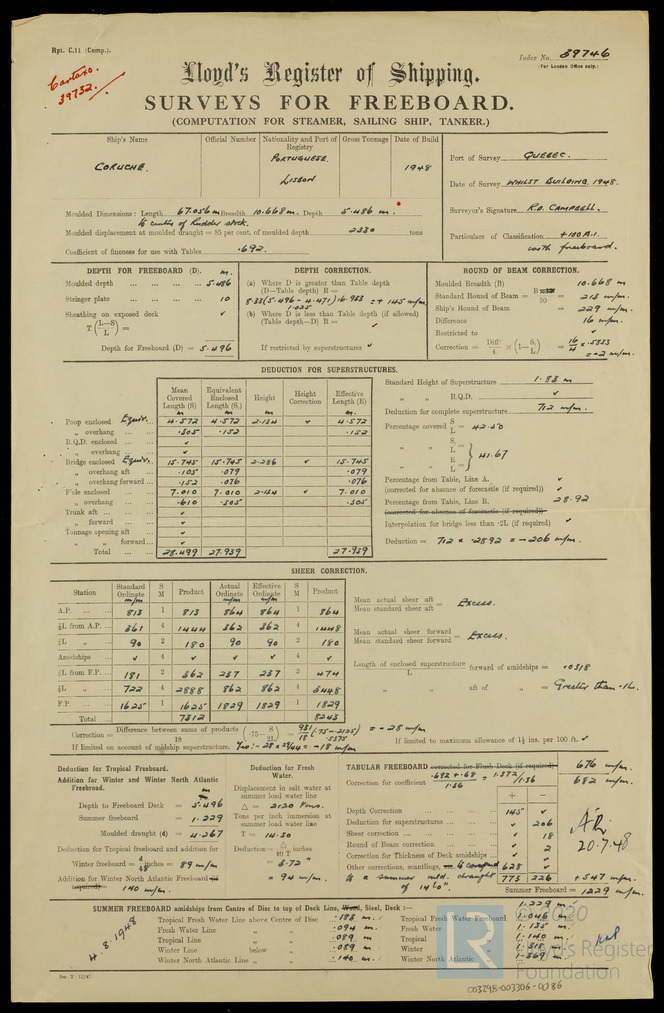 Rpt. C.11 (Comp.).
Index No. 39746
(For London Office only.)
Cartaxo.
39732.
Lloyd's Register of Shipping.
SURVEYS FOR FREEBOARD.
(COMPUTATION FOR STEAMER, SAILING SHIP, TANKER.)
Ship's Name Official Number Nationality and Port of Registry Gross Tonnage Date of Build
CORUCHE. PORTUGUESE. LISBON 1948
Port of Survey QUEBEC.
Date of Survey WHILST BUILDING, 1948.
Surveyor's Signature R.D. CAMPBELL.
Particulars of Classification +100 A.1. with freeboard.
Moulded Dimensions: Length 67.056 m Breadth 10.668 m. Depth 5.486 m.
to centre of Rudder stock.
Moulded displacement at moulded draught = 85 per cent. of moulded depth 2330 tons
Coefficient of fineness for use with Tables .692
DEPTH FOR FREEBOARD (D). m.
Moulded depth 5.486
Stringer plate 10
Sheathing on exposed deck ✓
T (L-S/L) =
Depth for Freeboard (D) = 5.496
DEPTH CORRECTION.
(a) Where D is greater than Table depth
(D—Table depth) R =
8.33 (5.496 - 4.471) 16.983 = + 145 m/m.
1.025
(b) Where D is less than Table depth (if allowed)
(Table depth—D) R = ✓
If restricted by superstructures ✓
ROUND OF BEAM CORRECTION.
Moulded Breadth (B) 10.668 m
Standard Round of Beam = B/50 = 213 m/m.
Ship's Round of Beam = 229 m/m.
Difference 16 m/m.
Restricted to ✓
Correction = Diff'/4 × (1-S/L) = 16/4 × .5833 = -2 m/m.
DEDUCTION FOR SUPERSTRUCTURES.
Mean Covered Length (S) Equivalent Enclosed Length (S₁) Height Height Correction Effective Length (E)
m m m.
Poop enclosed Equiv. 4.572 4.572 2.134 ✓ 4.572
„ overhang .305 .152 .152
R.Q.D. enclosed ✓
„ overhang ✓
Bridge enclosed Equiv. 15.745 15.745 2.286 ✓ 15.745
„ overhang aft .105 .079 .079
„ overhang forward .152 .076 .076
F'cle enclosed 7.010 7.010 2.134 ✓ 7.010
„ overhang .610 .305 .305
Trunk aft ✓
„ forward ✓
Tonnage opening aft ✓
„ „ forward ✓
Total 28.499 27.939 27.939
Standard Height of Superstructure 1.83 m
„ „ R.Q.D. ✓
Deduction for complete superstructure 712 m/m.
Percentage covered S/L = 42.50
„ „ S₁/L =
„ „ E/L = } 41.67
Percentage from Table, Line A. ✓
(corrected for absence of forecastle (if required)) ✓
Percentage from Table, Line B. 28.92
(corrected for absence of forecastle (if required))
Interpolation for bridge less than ·2L (if required) ✓
Deduction = 712 × .2892 = -206 m/m.
SHEER CORRECTION.
Station Standard Ordinate S M Product Actual Ordinate Effective Ordinate S M Product
m/m m/m m/m
A.P. 813 1 813 864 864 1 864
⅙L from A.P. 361 4 1444 362 362 4 1448
⅓L „ 90 2 180 90 90 2 180
Amidships ✓ 4 ✓ ✓ ✓ 4 ✓
⅓L from F.P. 181 2 362 237 237 2 474
⅙L „ 722 4 2888 862 862 4 3448
F.P. 1625 1 1625 1829 1829 1 1829
Total 7312 8243
Mean actual sheer aft / Mean standard sheer aft = Excess.
Mean actual sheer forward / Mean standard sheer forward = Excess.
Length of enclosed superstructure / L forward of amidships = .0318
„ „ aft of „ = Greater than .1L.
Correction = Difference between sums of products / 18 (·75 - S/2L) = 931/18 (.75 - .2125) .5375 = -28 m/m.
If limited on account of midship superstructure. Yes :- 28 × = -18 m/m.
If limited to maximum allowance of 1½ ins. per 100 ft. ✓
Deduction for Tropical Freeboard.
Addition for Winter and Winter North Atlantic Freeboard.
m
Depth to Freeboard Deck = 5.496
Summer freeboard = 1.229
Moulded draught (d) = 4.267
Deduction for Tropical freeboard and addition for
Winter freeboard = d/48 inches = 89 m/m
Addition for Winter North Atlantic Freeboard (if required) =
140 m/m.
Deduction for Fresh Water.
Displacement in salt water at summer load water line
Δ = 2120 Tons.
Tons per inch immersion at summer load water line
T = 14.30
Deduction = Δ/40 T inches
= 3.72"
= 94 m/m.
TABULAR FREEBOARD corrected for Flush Deck (if required) 676 m/m.
Correction for coefficient .692 + .68 / 1.36 = 1.372/1.36 682 m/m.
+ -
Depth Correction 145 ✓
Deduction for superstructures ✓ 206
Sheer correction ✓ 18
Round of Beam correction ✓ 2
Correction for Thickness of Deck amidships ✓ ✓
Other corrections, scantlings, to correspond 628 ✓
to a summer mld. draught of 14'0". 773 226 + 547 m/m.
Summer Freeboard = 1229 m/m.
20.7.48
SUMMER FREEBOARD amidships from Centre of Disc to top of Deck Line, Wood, Steel, Deck :— 1.229 m.
Tropical Fresh Water Line above Centre of Disc .183 m. Tropical Fresh Water Freeboard 1.046 m.
Fresh Water Line „ „ .094 m. Fresh Water „ 1.135 m.
Tropical Line „ „ .089 m. Tropical „ 1.140 m.
Winter Line below „ .089 m. Winter „ 1.318 m.
Winter North Atlantic Line „ „ .140 m. Winter North Atlantic „ 1.369 m.
4.8.1948
© 2020
Lloyd's Register
Foundation
003298-003306-0086